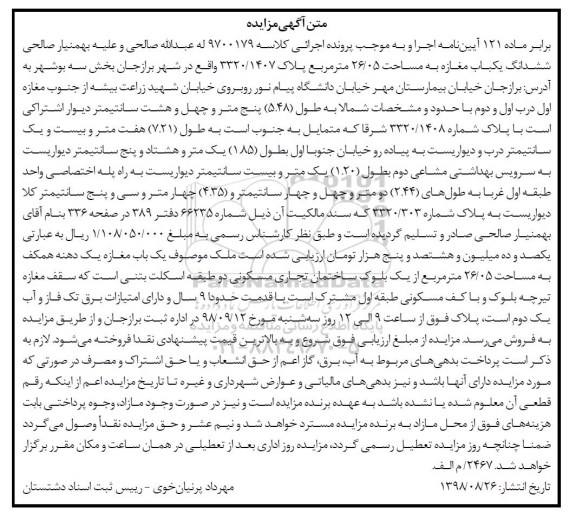 متن آگهی مزایده
برابر ماده ۱۲۱ آیین‌نامه اجرا و به موجب پرونده اجرائی کلاسه ۹۷۰۰۱۷۹ له عبدالله صالحی و علیه بهمنیار صالحی
ششدانگ یکباب مغازه به مساحت ۲۶/۰۵ مترمربع پلاک ۳۳۲۰/۱۴۰۷ واقع در شهر برازجان بخش سه بوشهر به
آدرس: برازجان خیابان بیمارستان مهر خیابان دانشگاه پیام نور روبروی خیابان شهید زراعت پیشه از جنوب مغازه
اول درب اول و دوم با حدود و مشخصات شمالا به طول (۵.۴۸) پنج متر و چهل و هشت سانتیمتر دیوار اشتراکی
است با پلاک شماره ۳۳۲۰/۱۴۰۸ شرقا که متمایل به جنوب است به طول (۷.۲۱) هفت متر و بیست و یک
سانتیمتر درب و دیواریست به پیاده رو خیابان جنوبا اول بطول (۱.۸۵) یک متر و هشتاد و پنج سانتیمتر دیواریست
به سرویس بهداشتی مشاعی دوم بطول (۱.۲۰) یک متر و بیست سانتیمتر دیواریست به راه پله اختصاصی واحد
طبقه اول غربا به طول‌های (۲.۴۴) دو متر و چهل و چهار سانتیمتر و (۴.۳۵) چهار متر و سی و پنج سانتیمتر کلا
دیواریست به پلاک شماره ۳۳۲۰/۳۰۳ که سند مالکیت آن ذیل شماره ۶۶۲۳۵ دفتر ۳۸۹ در صفحه ۳۳۶ بنام آقای
بهمنیار صالحی صادر و تسلیم گردیده است و طبق نظر کارشناس رسمی به مبلغ ۱/۱۰۸۰۵۰/۰۰۰ ریال به عبارتی
یکصد و ده میلیون و هشتصد و پنج هزار تومان ارزیابی شده است ملک موصوف یک باب مغازه یک دهنه همکف
به مساحت ۲۶/۰۵ مترمربع از یک بلوک ساختمان تجاری مسکونی دو طبقه اسکلت بتنی است که سقف مغازه
تیرچه بلوک و با کف مسکونی طبقه اول مشترک است با قدمت حدودا ۹ سال و دارای امتیازات برق تک فاز و آب
یک دوم است، پلاک فوق از ساعت ۹ الی ۱۲ روز سه‌شنبه مورخ ۹۸/۰۹/۱۲ در اداره ثبت برازجان و از طریق مزایده
به فروش می‌رسد. مزایده از مبلغ ارزیابی فوق شروع و به بالاترین قیمت پیشنهادی نقدا فروخته می‌شود. لازم به
ذکر است پرداخت بدهی‌های مربوط به آب، برق، گاز اعم از حق انشعاب و یا حق اشتراک و مصرف در صورتی که
مورد مزایده دارای آنها باشد و نیز بدهی‌های مالیاتی و عوارض شهرداری و غیره تا تاریخ مزایده اعم از اینکه رقم
قطعی آن معلوم شده یا نشده باشد به عهده برنده مزایده است و نیز در صورت وجود مازاد، وجوه پرداختی بابت
هزینه‌های فوق از محل مازاد به برنده مزایده مسترد خواهد شد و نیم عشر و حق مزایده نقداً وصول می‌گردد
ضمنا چنانچه روز مزایده تعطیل رسمی گردد، مزایده روز اداری بعد از تعطیلی در همان ساعت و مکان مقرر برگزار
خواهد شد. ۲۴۶۷/ م الف.
تاریخ انتشار: ۱۳۹۸/۰۸/۲۶ مهرداد پرنیان‌خوی - رییس ثبت اسناد دشتستان